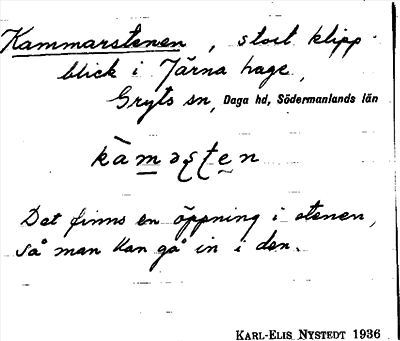 Kammarstenen, stort klipp-
block i Järna hage,
Gryts sn, Daga hd, Södermanlands län
kàməsten
Det finns en öppning i stenen,
så man kan gå in i den.
KARL-ELIS NYSTEDT 1936